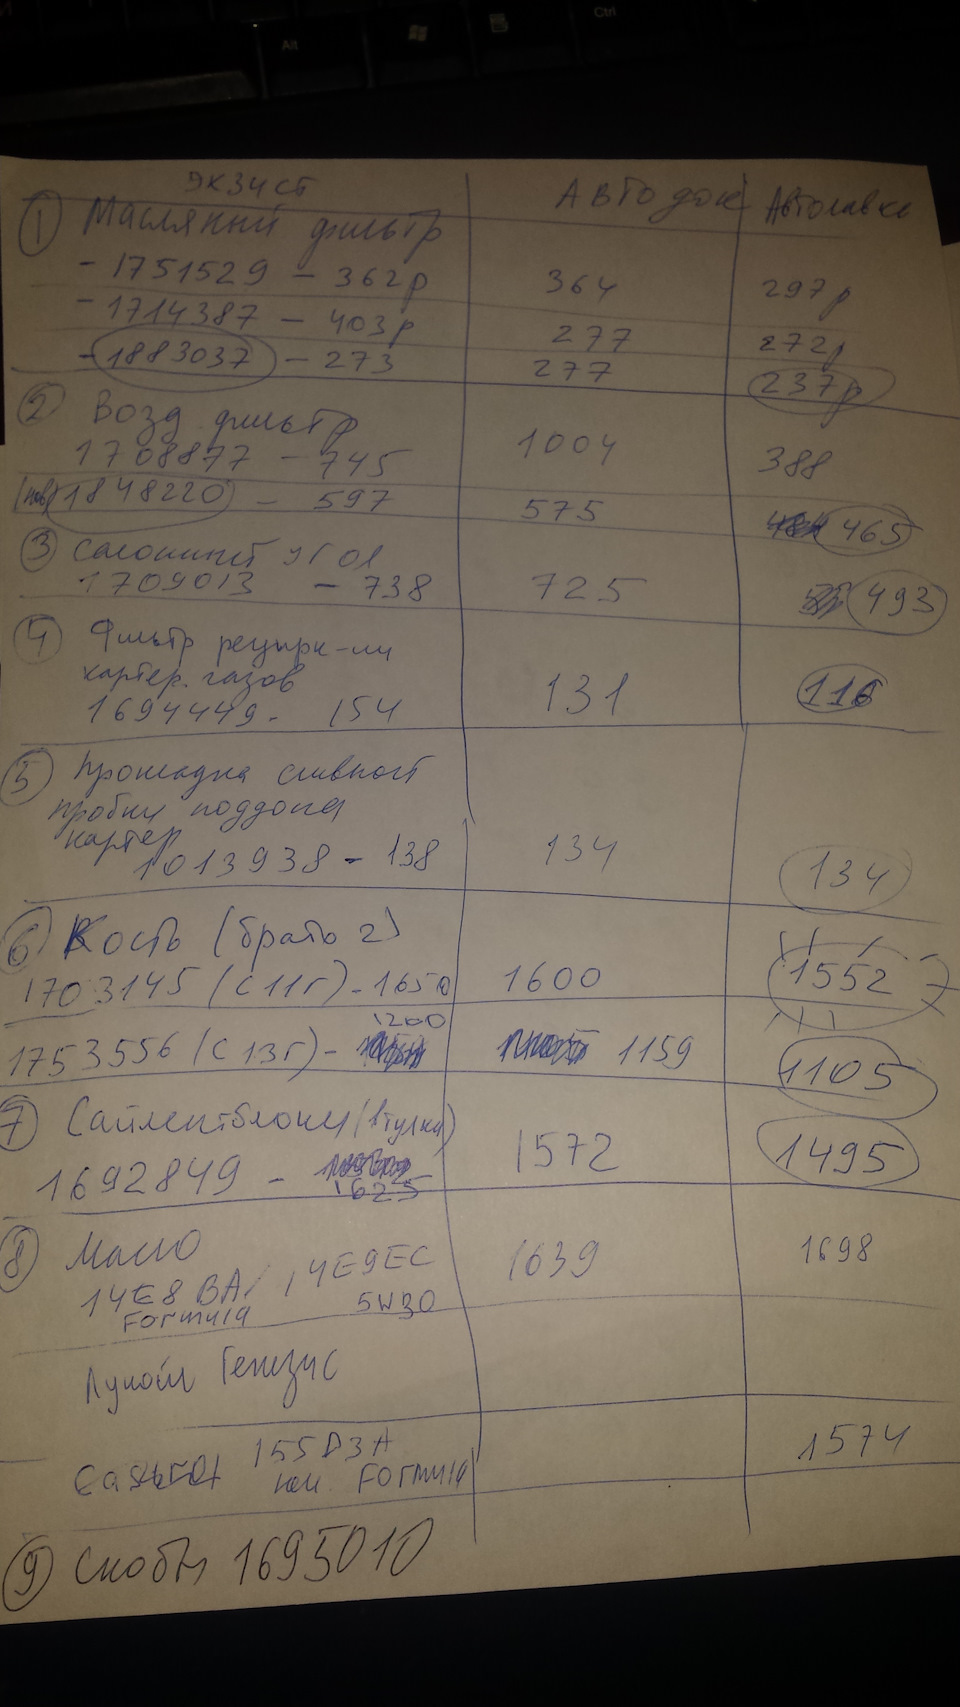 Alt
Ctrl
экзист Автодок Автолавка
1 Маслянный фильтр
- 1751529 - 362р 364 297р
- 1714387 - 403р 277 272р
- 1883037 - 273 277 237р
2 Возд. фильтр
1708877 - 745 1004 388
(нов) 1848220 - 597 575 465
3 Салонный угол
1709013 - 738 725 493
4 Фильтр рецирк-ии
картер. газов
1694449 - 154 131 116
5 Прокладка сливной
пробки поддона
картер
1013938 - 138 134 134
6 Кость (брать 2)
1703145 (с 11г) - 1650 1600 1552
1200
1753556 (с 13г) - 1159 1105
7 Сайлентблоки (втулка)
1692849 - 1625 1572 1495
8 Масло
14E8BA / 14E9EC 1639 1698
Formula 5W30
Лукойл Генезис
Castrol 155D3A 1574
Formula
9 Скобы 1695010